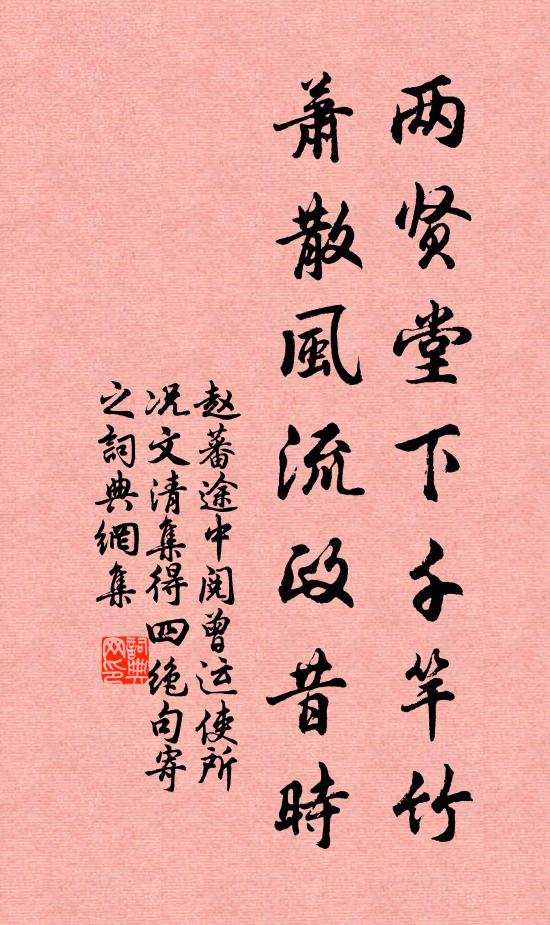 两贤堂下千竿竹
萧散風流政昔時
赵蕃途中阅曾运使所
况文清集得四绝句寄
之詞典網集
詞典網印